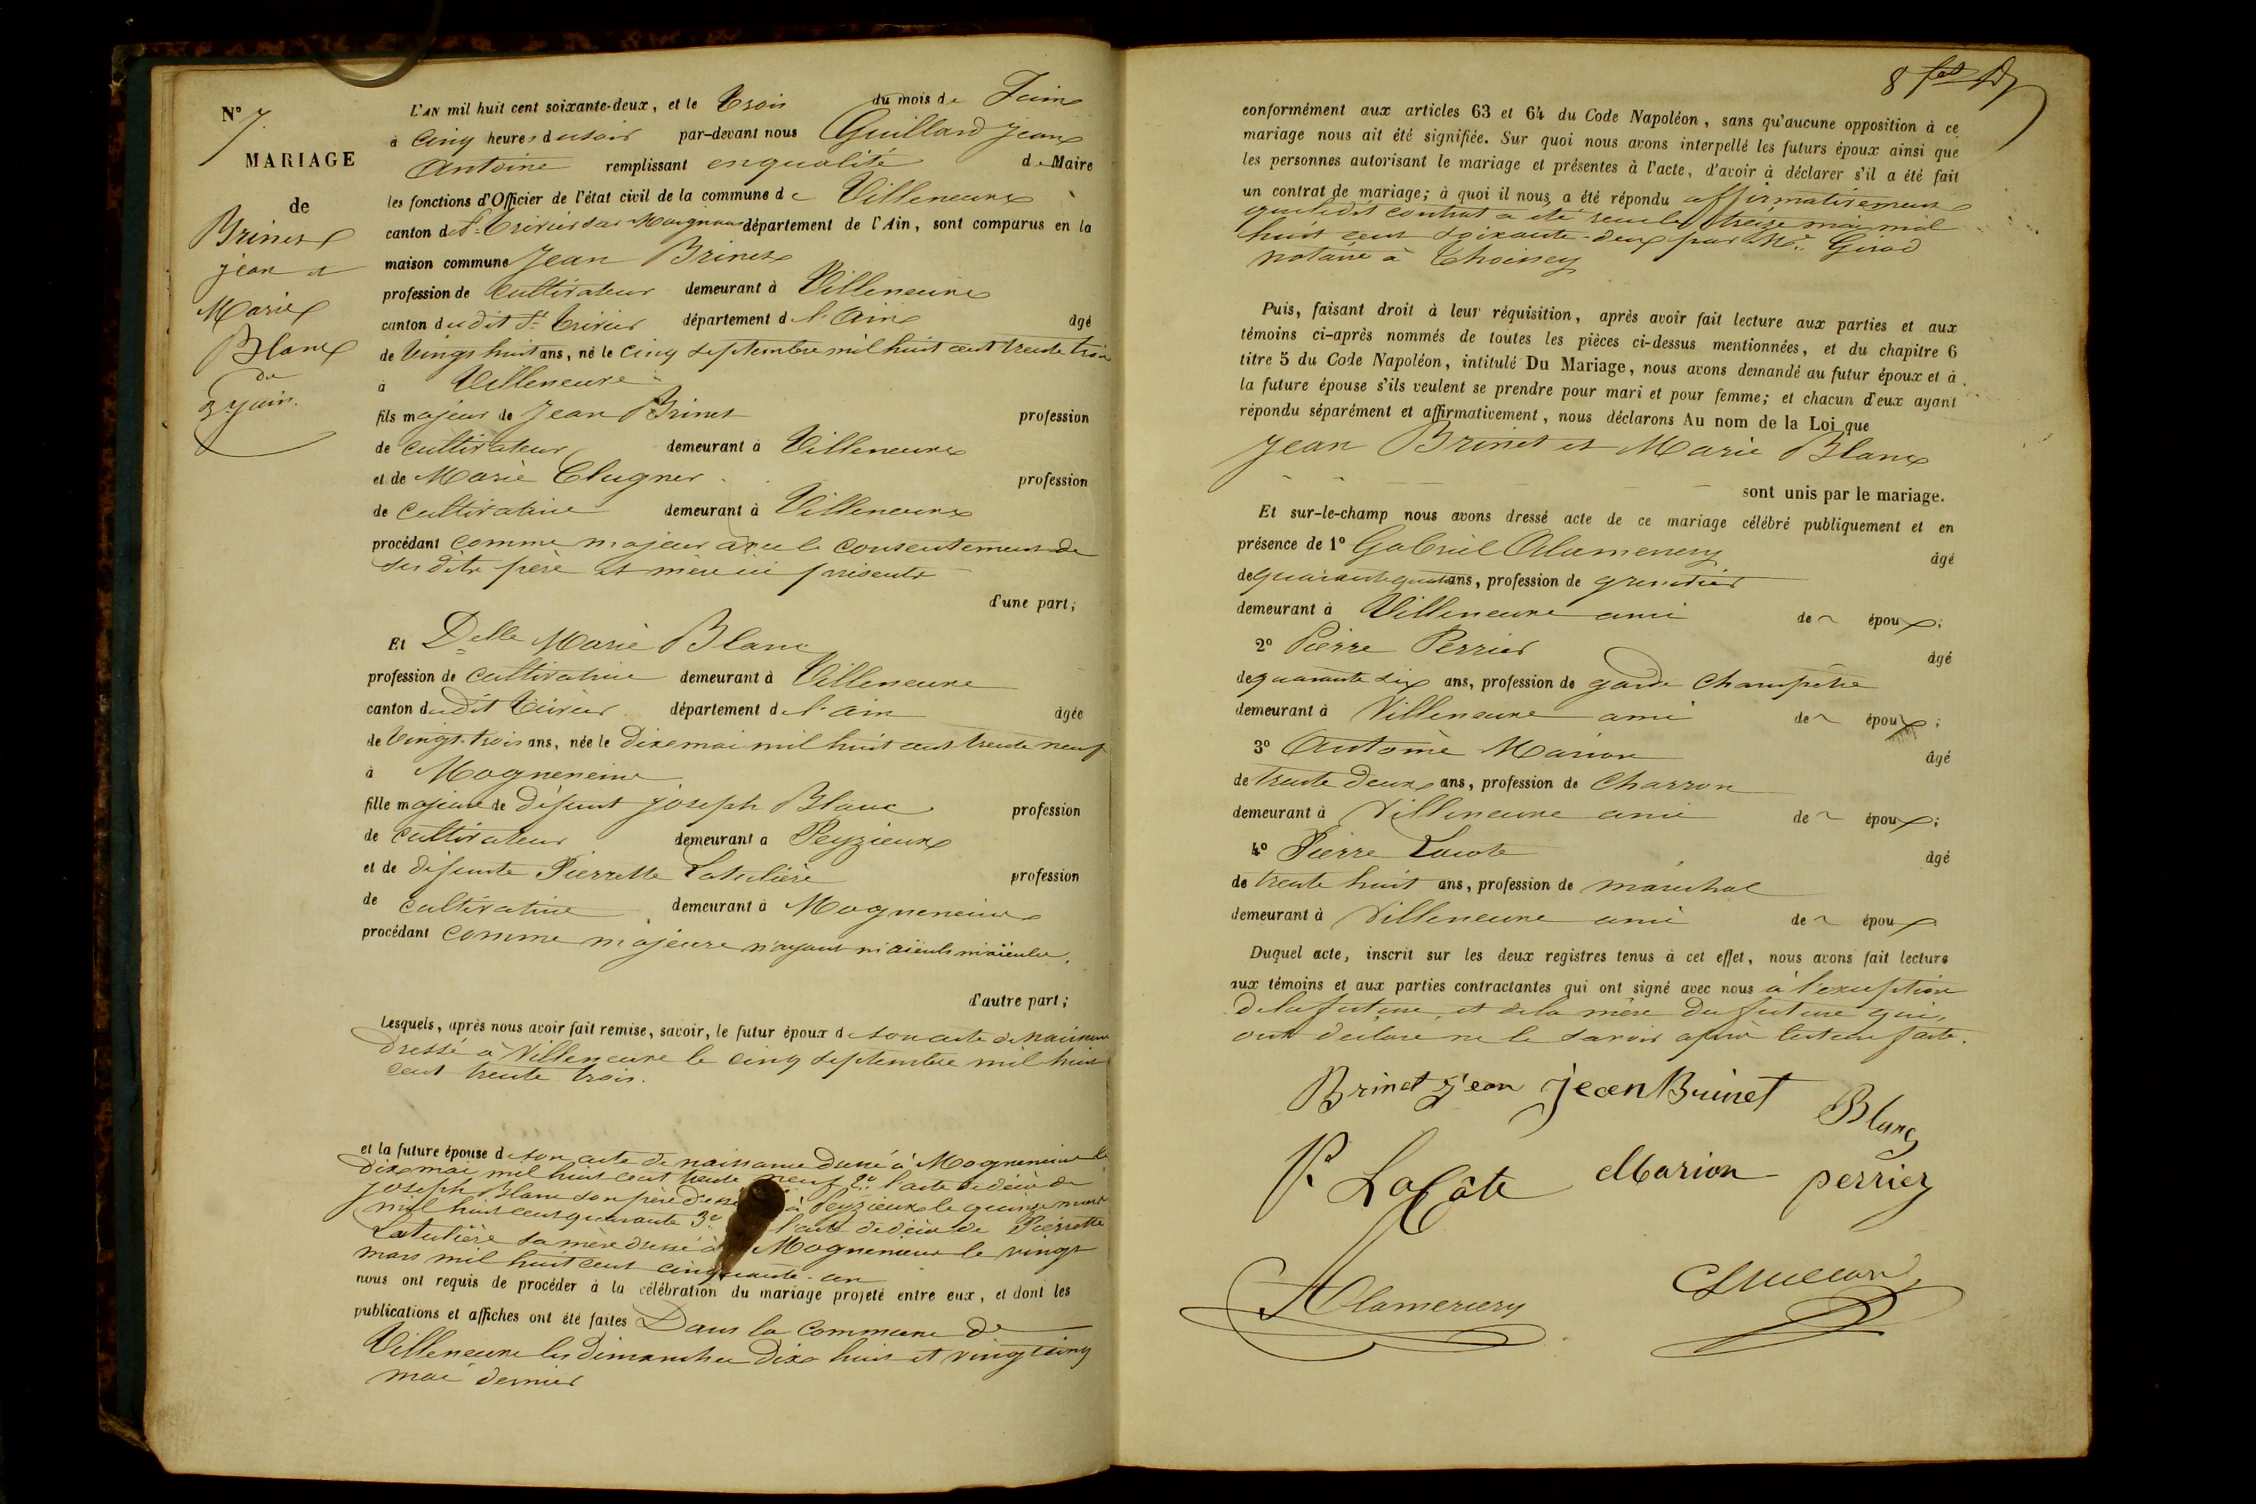 N° 7.
MARIAGE
de
Brinet
jean et
Marie
Blanc
du
3 juin.
L'AN mil huit cent soixante-deux, et le trois du mois de Juin
à cinq heures du soir par-devant nous Guillard Jean
Antoine remplissant en qualité de Maire
les fonctions d'Officier de l'état civil de la commune de Villeneuve
canton de St Trivier sur Moignans département de l'Ain, sont comparus en la
maison commune Jean Brinet
profession de cultivateur demeurant à Villeneuve
canton du dit St Trivier département de l'Ain âgé
de vingt huit ans, né le cinq septembre mil huit cent trente trois
à Villeneuve
fils majeur de Jean Brinet profession
de cultivateur demeurant à Villeneuve
et de Marie Clugner profession
de cultivatrice demeurant à Villeneuve
procédant comme majeur avec le consentement de
ses dits père et mère ici présents
d'une part;
Et Delle Marie Blanc
profession de cultivatrice demeurant à Villeneuve
canton du dit Trivier département de l'ain âgée
de vingt-trois ans, née le dix mai mil huit cent trente neuf
à Mogneneins
fille majeure de défunt joseph Blanc profession
de cultivateur demeurant a Peyzieux
et de défunte Pierrette Latulière profession
de cultivatrice demeurant à Mogneneins
procédant comme majeure n'ayant ni aïeuls ni aïeules.
d'autre part;
Lesquels, après nous avoir fait remise, savoir, le futur époux de son acte de naissance
dressé à Villeneuve le cinq septembre mil huit
cent trente trois.
et la future épouse de son acte de naissance dressé à Mogneneins le
dix mai mil huit cent trente neuf 2° l'acte de décès de
joseph Blanc son père à Peyzieux le quinze
mil huit cent quarante 3° l'acte de décès de Pierrette
Latulière sa mère dressé à Mogneneins le vingt
mars mil huit cent cinquante-un
nous ont requis de procéder à la célébration du mariage projeté entre eux, et dont les
publications et affiches ont été faites Dans la commune de
Villeneuve les dimanches dix huit et vingt cinq
mai dernier
8
conformément aux articles 63 et 64 du Code Napoléon, sans qu'aucune opposition à ce
mariage nous ait été signifiée. Sur quoi nous avons interpellé les futurs époux ainsi que
les personnes autorisant le mariage et présentes à l'acte, d'avoir à déclarer s'il a été fait
un contrat de mariage; à quoi il nous a été répondu affirmativement
que ledit contrat a été reçu le treize mai mil
huit cent soixante-deux par Me Girod
notaire à Thoissey
Puis, faisant droit à leur réquisition, après avoir fait lecture aux parties et aux
témoins ci-après nommés de toutes les pièces ci-dessus mentionnées, et du chapitre 6
titre 5 du Code Napoléon, intitulé Du Mariage, nous avons demandé au futur époux et à
la future épouse s'ils veulent se prendre pour mari et pour femme; et chacun d'eux ayant
répondu séparément et affirmativement, nous déclarons Au nom de la Loi que
Jean Brinet et Marie Blanc
sont unis par le mariage.
Et sur-le-champ nous avons dressé acte de ce mariage célébré publiquement et en
présence de 1° Gabriel Alamercery âgé
de quarante quatre ans, profession de greffier
demeurant à Villeneuve ami des époux;
2° Pierre Perrier âgé
de quarante six ans, profession de garde champêtre
demeurant à Villeneuve ami des époux;
3° Antoine Marion âgé
de trente deux ans, profession de charron
demeurant à Villeneuve ami des époux;
4° Pierre Lacote âgé
de trente huit ans, profession de maréchal
demeurant à Villeneuve ami des époux
Duquel acte, inscrit sur les deux registres tenus à cet effet, nous avons fait lecture
aux témoins et aux parties contractantes qui ont signé avec nous à l'exception
de la future et de la mère du future qui
ont déclaré ne le savoir après lecture faite.
Brinet jean jean Brinet Blanc
P. LaCôte Marion perrier
Alamercery Guillard